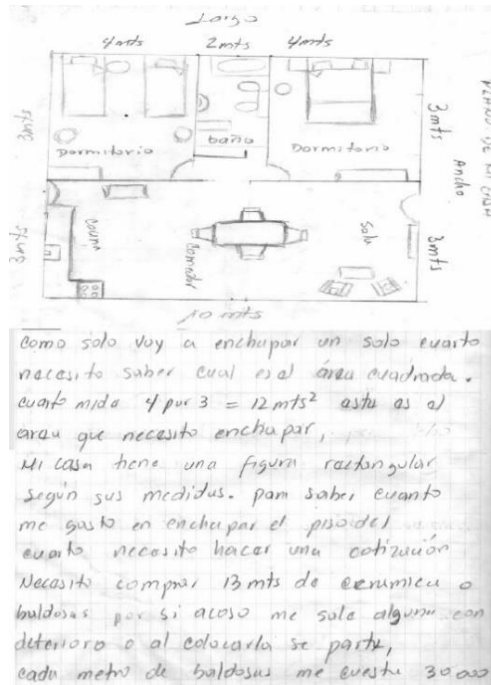 Largo
4mts 2mts 4mts
PLANO DE MI CASA
3mts
3mts
Ancho
3mts
3mts
baño
Dormitorio
Dormitorio
cocina
comedor
Sala
10 mts
como solo voy a enchapar un solo cuarto
necesito saber cual es el área cuadrada.
cuarto mide 4 por 3 = 12mts² esta es el
area que necesito enchapar,
Mi casa tiene una figura rectangular
según sus medidas. para saber cuanto
me gasto en enchapar el piso del
cuarto necesito hacer una cotización
Necesito comprar 13mts de ceramica o
baldosas por si acaso me sale alguna con
deterioro o al colocarla se parte,
cada metro de baldosas me cuesta 30000